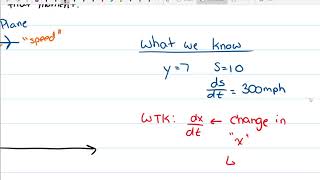 that moment.
Plane
"speed"
What we know
y=7 S=10
ds/dt = 300mph
WTK: dx/dt ← change in
"x"
↳